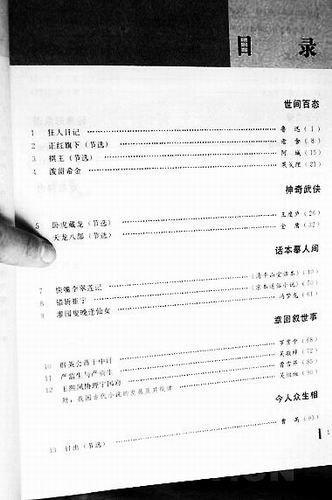 目 录
世间百态
1 狂人日记 鲁迅(1)
2 正红旗下(节选) 老舍(10)
3 棋王(节选) 阿城(15)
4 泼留希金 果戈理(21)
神奇武侠
5 卧虎藏龙(节选) 王度庐(26)
天龙八部(节选) 金庸(32)
话本摹人间
7 快嘴李翠莲记 (清平山堂话本)
8 错斩崔宁 (京本通俗小说)
9 灌园叟晚逢仙女 冯梦龙(61)
章回叙世事
10 群英会蒋干中计 罗贯中(68)
11 产
12 王熙凤协理宁国府
附:我国古代小说的发展及其规律
今人众生相
13 (节选) 曹禺